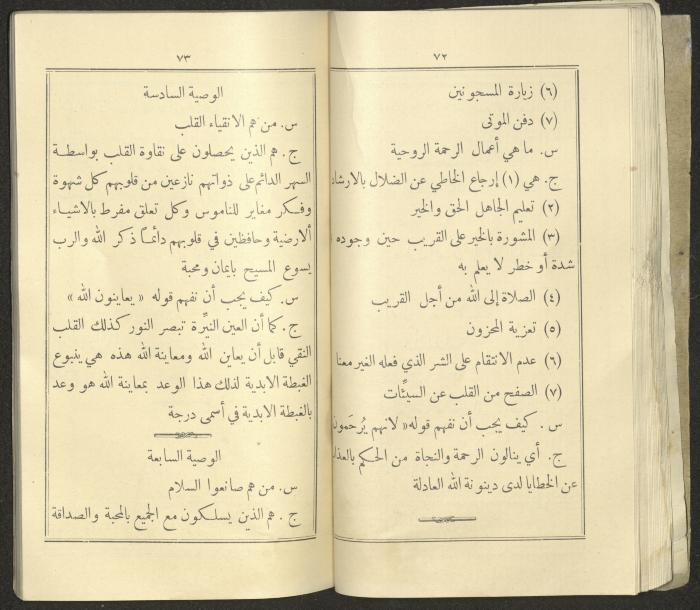 ٧٢
(٦) زيارة المسجونين
(٧) دفن الموتى
س. ما هي أعمال الرحمة الروحية
ج. هي (١) إرجاع الخاطي عن الضلال بالارشاد
(٢) تعليم الجاهل الحق والخير
(٣) المشورة بالخير على القريب حين وجوده
شدة أو خطر لا يعلم به
(٤) الصلاة إلى الله من أجل القريب
(٥) تعزية المحزون
(٦) عدم الانتقام على الشر الذي فعله الغير معنا
(٧) الصفح من القلب عن السيئات
س. كيف يجب أن نفهم قوله « لانهم يُرحَمون
ج. أي ينالون الرحمة والنجاة من الحكم بالعذاب
عن الخطايا لدى دينونة الله العادلة
٧٣
الوصية السادسة
س. من هم الانقياء القلب
ج. هم الذين يحصلون على نقاوة القلب بواسطة
السهر الدائم على ذواتهم نازعين من قلوبهم كل شهوة
وفكر مغاير للناموس وكل تعلق مفرط بالاشياء
ألارضية وحافظين في قلوبهم دائماً ذكر الله والرب
يسوع المسيح بايمان ومحبة
س. كيف يجب أن نفهم قوله « يعاينون الله »
ج. كما أن العين النيِّرة تبصر النور كذلك القلب
النقي قابل أن يعاين الله ومعاينة الله هذه هي ينبوع
الغبطة الابدية لذلك هذا الوعد بمعاينة الله هو وعد
بالغبطة الابدية في أسمى درجة
الوصية السابعة
س. من هم صانعوا السلام
ج. هم الذين يسلكون مع الجميع بالمحبة والصداقة